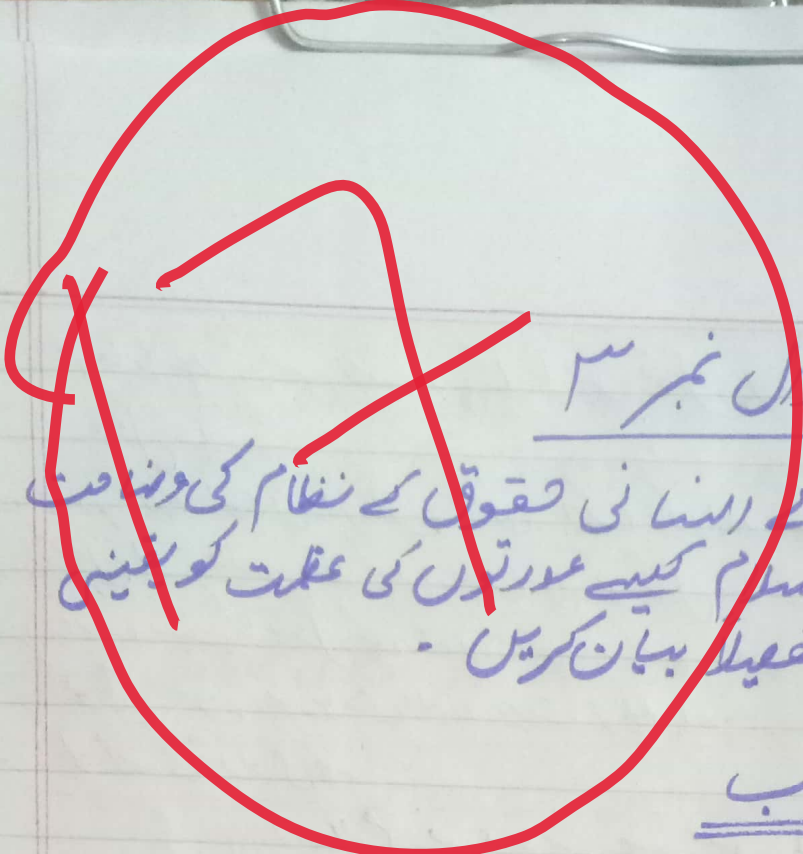 17
ال نمبر ۳
انسانی حقوق کے نظام کی وضاحت
سلام کیسے عورتوں کی عظمت کو یقینی
صیلاً بیان کریں ۔
ب